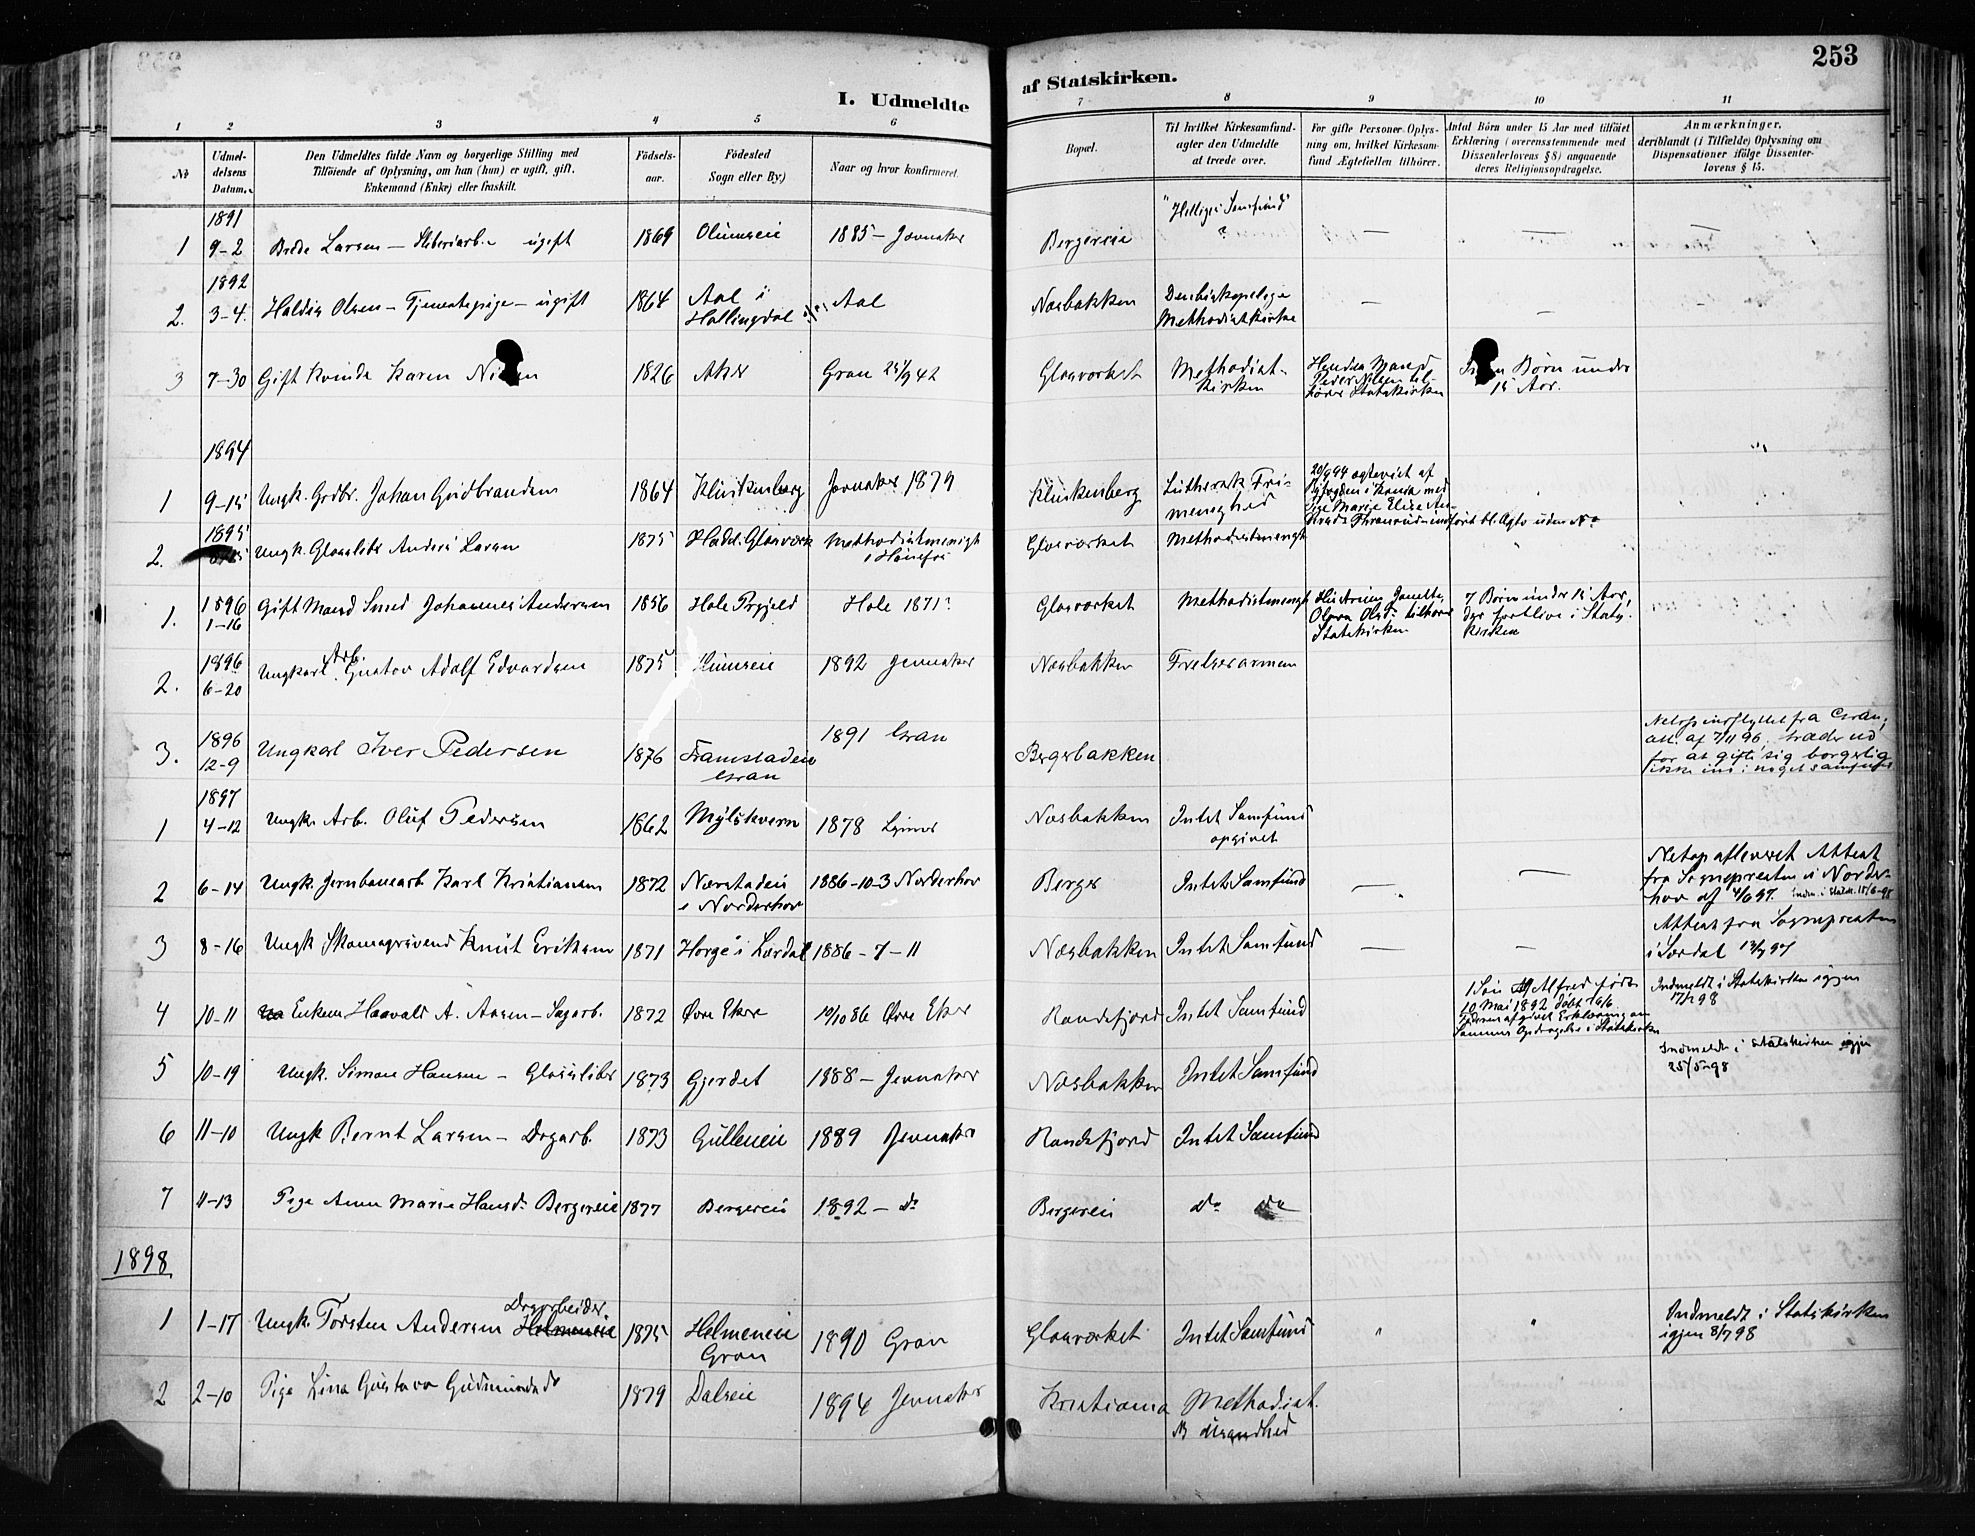 253
I. Udmeldte af Statskirken.
1 2 3 4 5 6 7 8 9 10 11
No
Udmel-
delsens
Datum.
Den Udmeldtes fulde Navn og borgerlige Stilling med
Tilføiende af Oplysning, om han (hun) er ugift, gift,
Enkemand (Enke) eller fraskilt.
Fødsels-
aar.
Fødested
Sogn eller By.)
Naar og hvor konfirmeret.
Bopæl.
Til hvilket Kirkesamfund-
agter den Udmeldte
at træde over.
For gifte Personer Oplys-
ning om, hvilket Kirkesam-
fund Ægtefællen tilhører.
Antal Børn under 15 Aar med tilføiet
Erklæring (overensstemmende med
Dissenterlovens § 8) angaaende
deres Religionsopdragelse.
Anmærkninger,
deriblandt (i Tilfælde) Oplysning om
Dispensationer ifølge Dissenter-
lovens § 15.
1891
1 9-2 Brede Larsen — ugift 1869 Olimseie 1885 - Jevnaker Bergereie "Hellige Samfund" ? — — —
1892
2. 3-4. Haldis Olsen - Tjenestepige - ugift 1864 Aal i
Hallingdal Aal Næsbakken Den biskopelige
Methodistkirke — — —
3 7-30 Gift Kvinde Karen 1826 Aker Gran 42 Glasværket Methodist-
kirken Hendes Mand
Peder Nilsen til-
hører Statskirken Børn under
15 Aar.
1894
1 9-15 Ungk. Grdbr. Johan Gudbrandsen 1864 Klinkenberg Jevnaker 1879 Klinkenberg Luthersk Fri-
menighed 20/9 94 ægteviet af
Fogden i med
Pige Marie Elise
1895
2. Ungk. Glassliber Anders Larsen 1875 Hadel. Glasværk Methodistmenigh
i Hønefos Glasværket Methodistmenigh
1. 1896
1-16 Gift Mand Smed Johannes Andersen 1856 Hole Prgjeld Hole 1871 Glasværket Methodistmenigh Hustruen
Olava Olsd. tilhører
Statskirken 7 Børn under 15 Aar,
der forblive i Stats-
kirken
2. 1896
6-20 Ungkarl Arb. Gustav Adolf Edvardsen 1875 1892 Jevnaker Næsbakken Frelsesarmeen
3. 1896
12-9 Ungkarl Iver Pedersen 1876 Framstadeie
Gran 1891 Gran Bergerbakken Netop indflyttet fra Gran,
att. af 7/11 96. træder ud
for at gifte sig borgerlig
ikke ind i noget samfund
1897
1 4-12 Ungk. Arb. Oluf Pedersen 1862 Mylskvern 1878 Næsbakken Intet Samfund
opgivet
2 6-14 Ungk. Jernbanearb Karl Kristiansen 1872 Nærstadeie
i Norderhov 1886-10-3 Norderhov Berger Intet Samfund — — Netop afleveret Attest
fra Sognepresten i Norder-
hov af 4/6 97. Indm. i Statsk. 15/6-98
3 8-16 Ungk Skomagersvend Knut Eriksen 1871 Horge i Lærdal 1886-7-11 Næsbakken Intet Samfund — — Attest fra Sognepresten
i Lærdal 13/7 97
4 10-11 Enkem Haavald A. Aasen - Sagarb. 1872 Øvre Eker 10/10 86 Øvre Eker Randsfjord Intet Samfund 1 Søn Alfred født
10 Mai 1892 døbt 16/6
Faderen afgivet Erklæring om
Sønnens Opdragelse i Statskirken Indmeldt i Statskirken igjen
17/2 98
5 10-19 Ungk. Simon Hansen - Glassliber 1873 Gjerdet 1888 - Jevnaker Næsbakken Intet Samfund Indmeldt i Statskirken igjen
25/5-98
6 11-10 Ungk Bernt Larsen - Dagarb. 1873 Gulleneie 1889 Jevnaker Randsfjord Intet Samfund
7 11-13 Pige Anne Marie Hansd. Bergereie 1877 Bergereie 1892 - do Bergereie do do
1898
1 1-17 Ungk. Torsten Andersen Dagarbeider Helmeneie 1875 Helmeneie
Gran 1890 Gran Glasværket Intet Samfund " " Indmeldt i Statskirken
igjen 8/7 98
2 2-10 Pige Lina Gustava Gudmundsd 1879 Dalseie 1894 Jevnaker Kristiania Methodist.